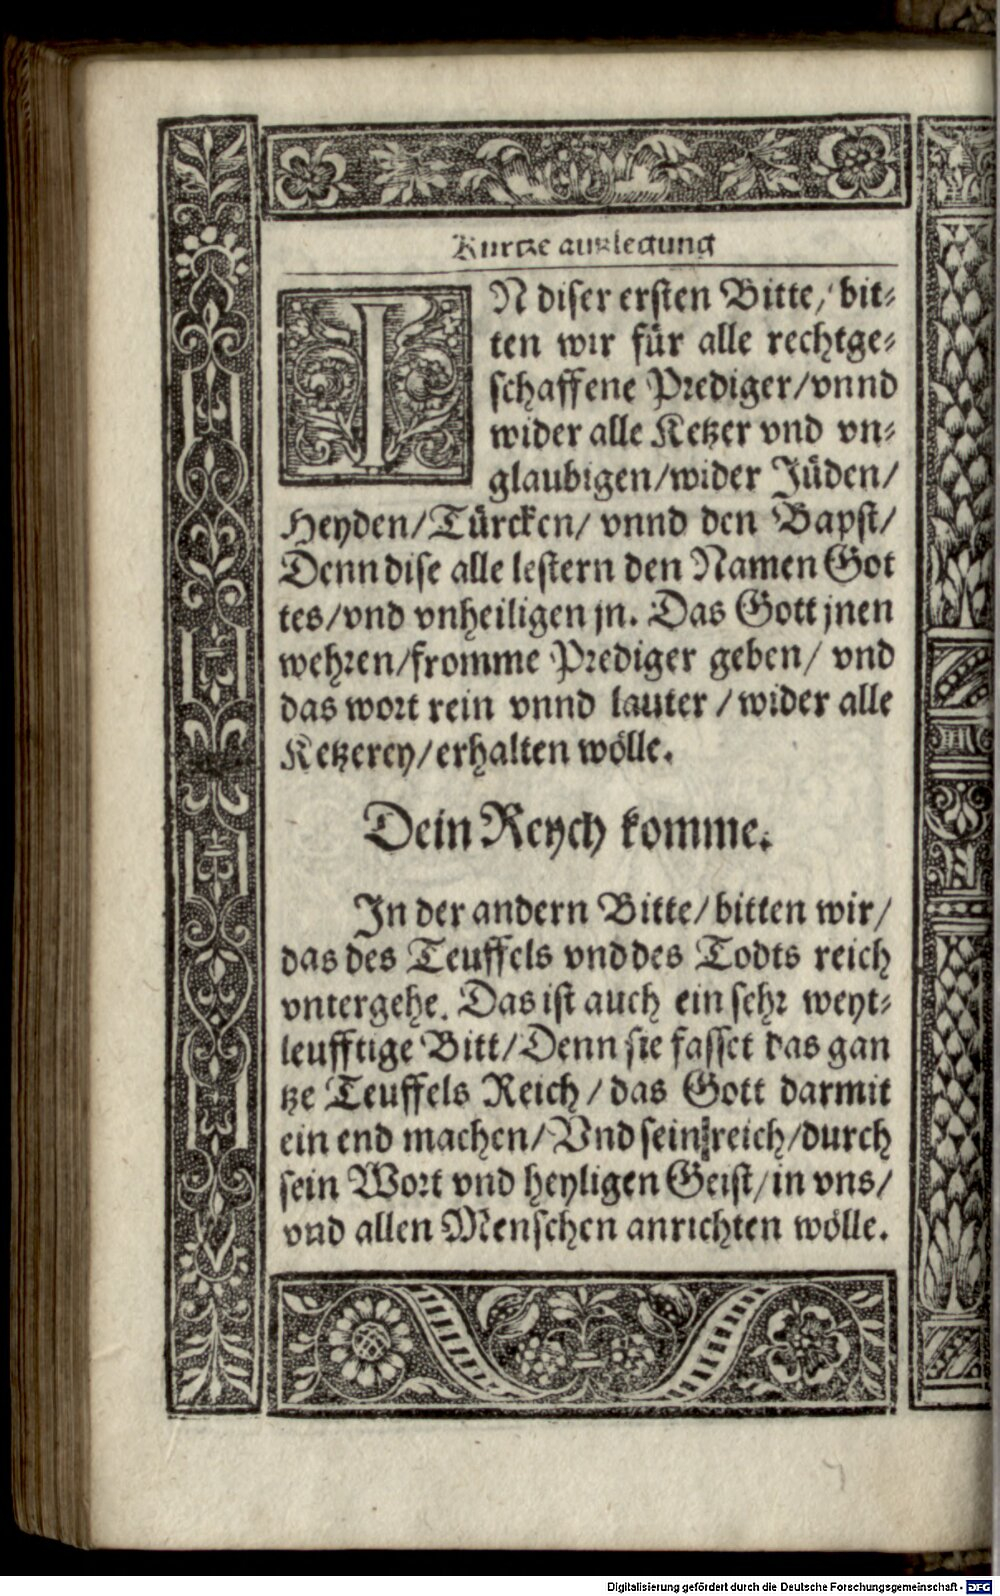 Kurtze auszlegung
IN diser ersten Bitte/ bit⸗
ten wir für alle rechtge⸗
schaffene Prediger/vnnd
wider alle Ketzer vnd vn⸗
glaubigen/wider Jüden/
Heyden/Türcken/ vnnd den Bapst/
Denn dise alle lestern den Namen Got
tes/vnd vnheiligen jn. Das Gott jnen
wehren/fromme Prediger geben/ vnd
das wort rein vnnd lauter / wider alle
Ketzerey/erhalten wölle.
Dein Reych komme.
In der andern Bitte/bitten wir/
das des Teuffels vnd des Todts reich
vntergehe. Das ist auch ein sehr weyt⸗
leufftige Bitt/Denn sie fasset das gan
tze Teuffels Reich / das Gott darmit
ein end machen/Vnd sein reich/durch
sein Wort vnd heyligen Geist/in vns/
vnd allen Menschen anrichten wölle.
Digitalisierung gefördert durch die Deutsche Forschungsgemeinschaft - DFG